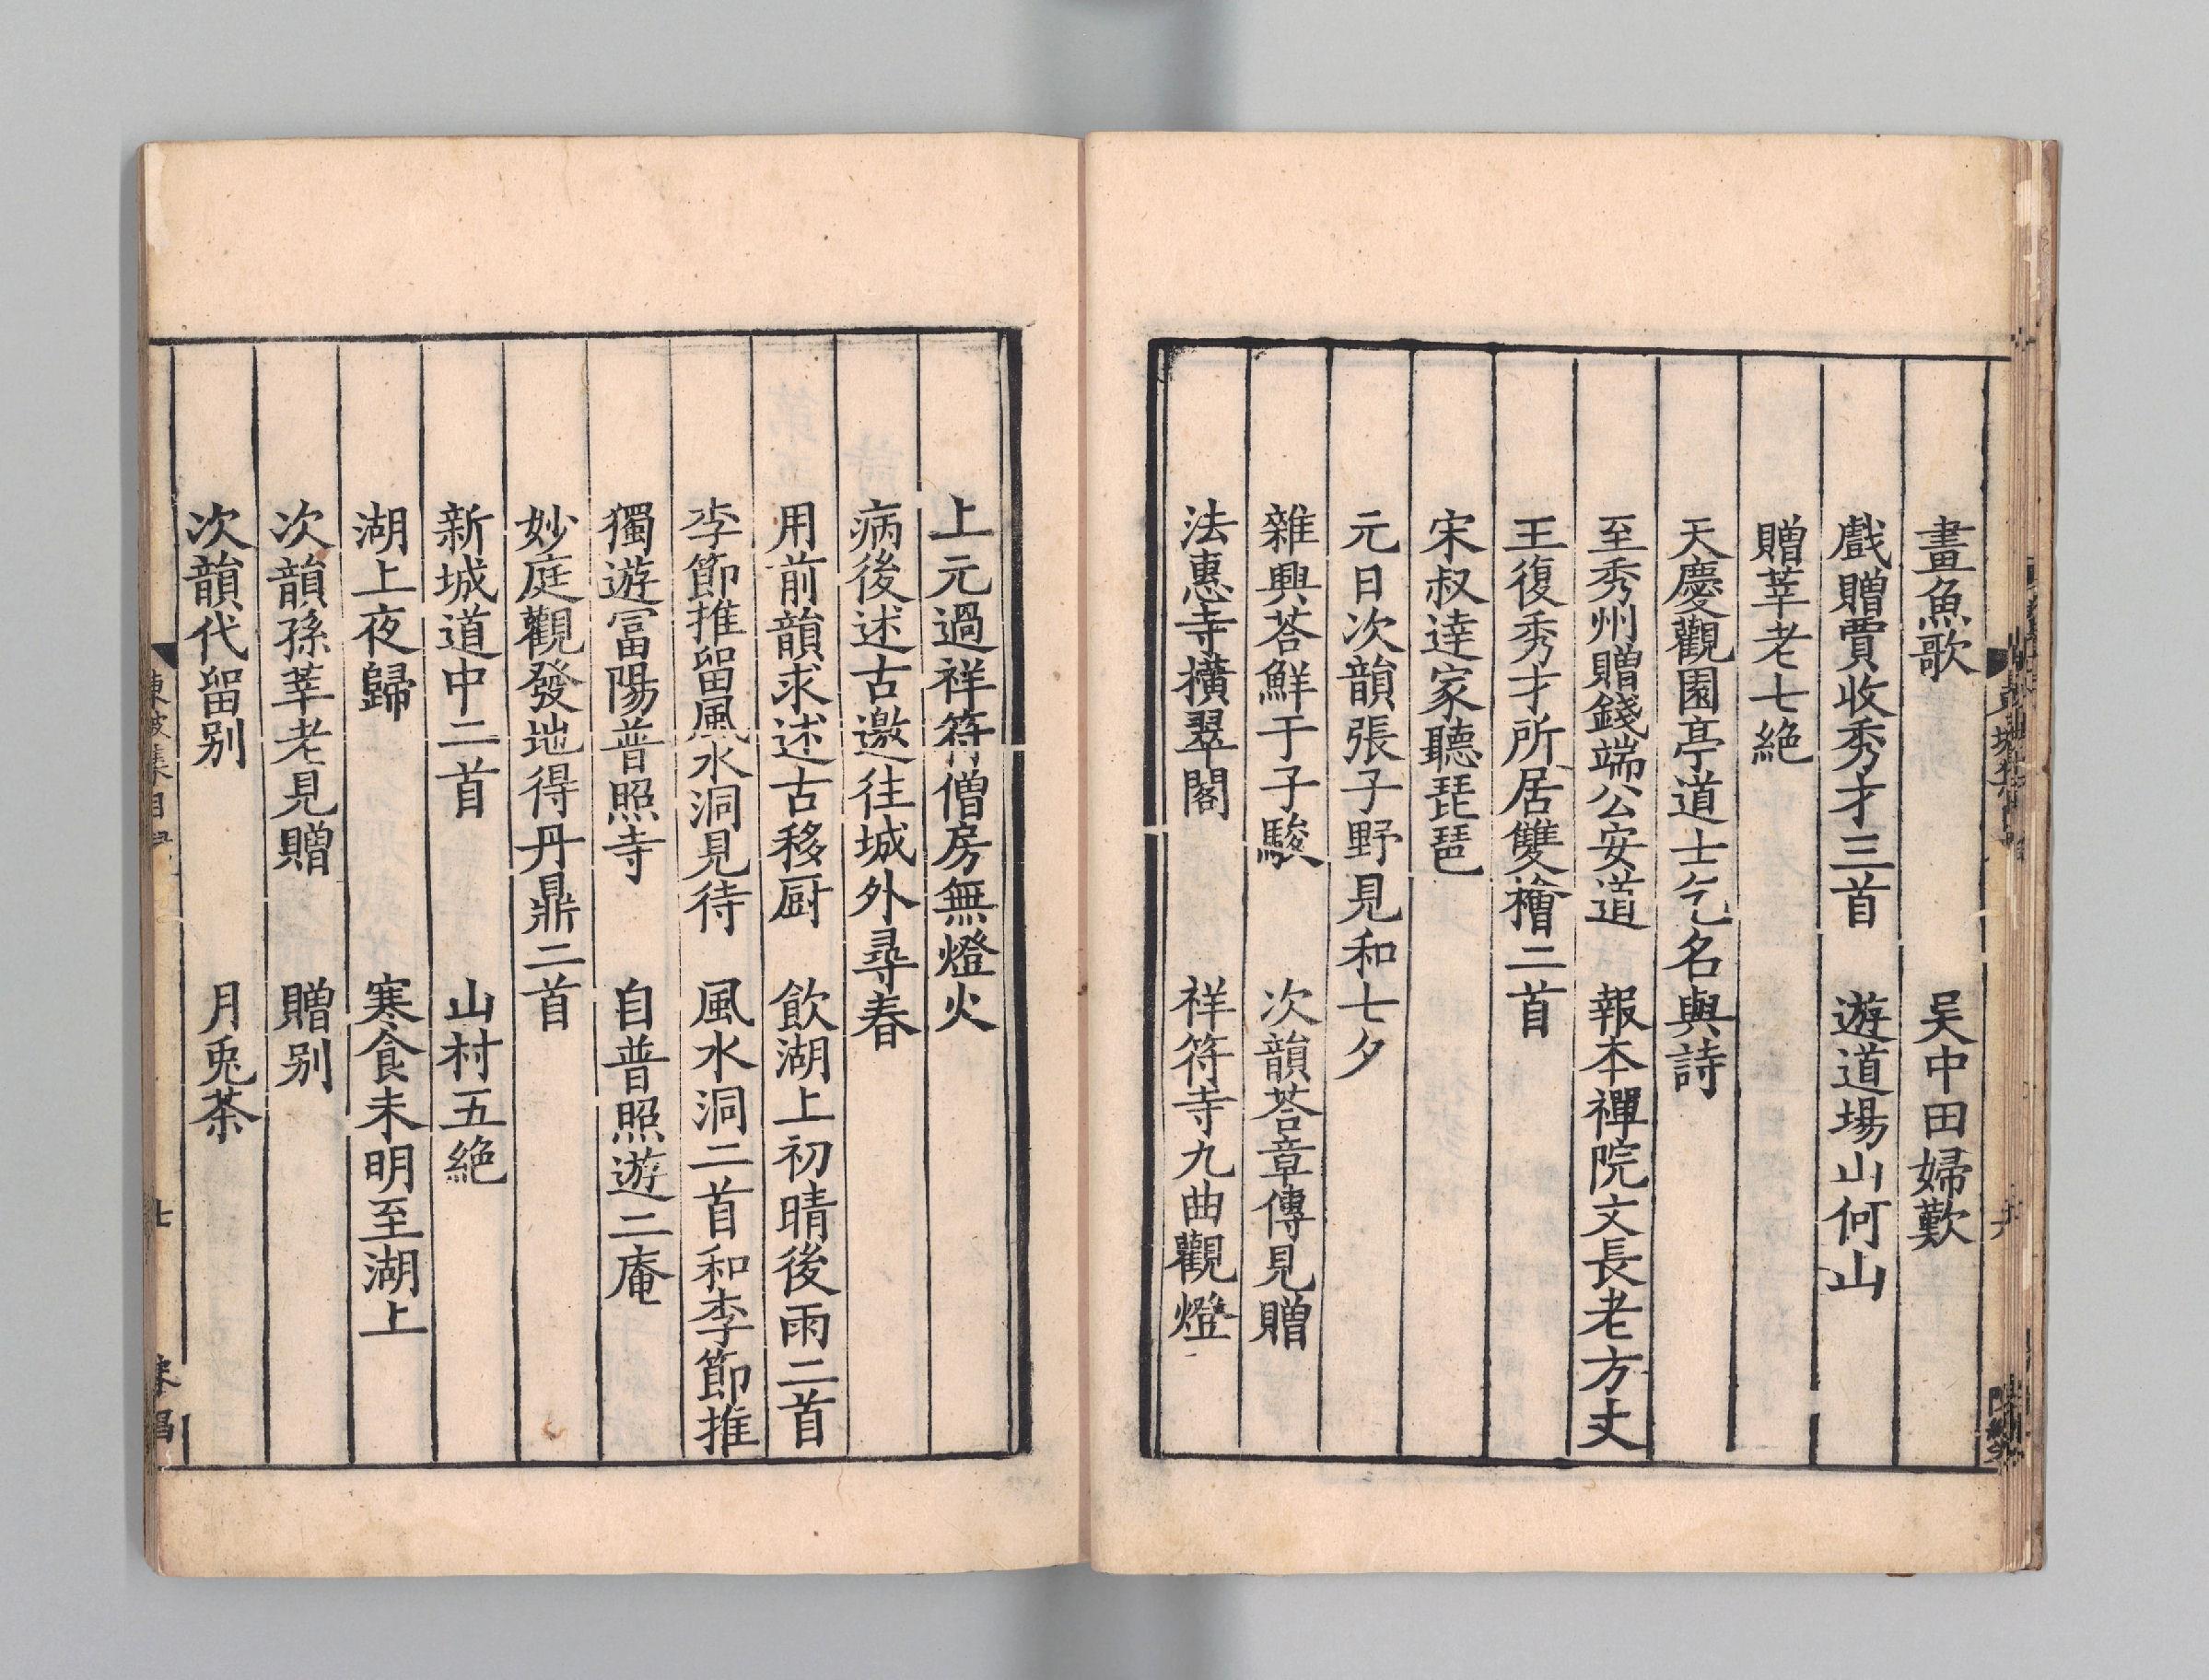 畫魚歌　吴中田婦歎
戲贈賈收秀才三首　遊道場山何山
贈莘老七絶
天慶觀園亭道士乞名與詩
至秀州贈錢端公安道　報本禪院文長老方丈
王復秀才所居雙檜二首
宋叔達家聽琵琶
元日次韻張子野見和七夕
雜興荅鮮于子駿　次韻荅章傳見贈
法惠寺橫翠閣　祥符寺九曲觀燈
上元過祥符僧房無燈火
病後述古邀往城外尋春
用前韻求述古移厨　飲湖上初晴後雨二首
李節推留風水洞見待　風水洞二首和李節推
獨遊冨陽普照寺　自普照遊二庵
妙庭觀發地得丹鼎二首
新城道中二首　山村五絶
湖上夜歸　寒食未明至湖上
次韻孫莘老見贈　贈别
次韻代留别　月兎茶
東坡集目
七